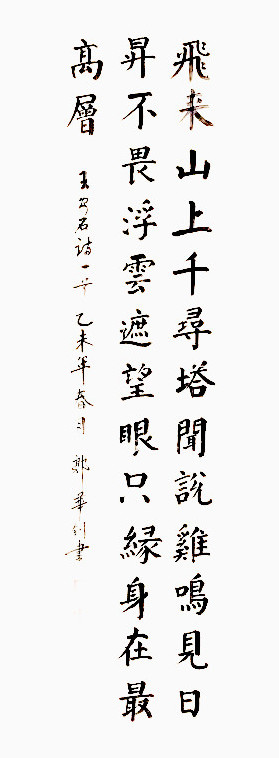 飛来山上千尋塔聞說雞鳴見日
昇不畏浮雲遮望眼只緣身在最
髙層
王安石詩一首 乙未年春月 華書